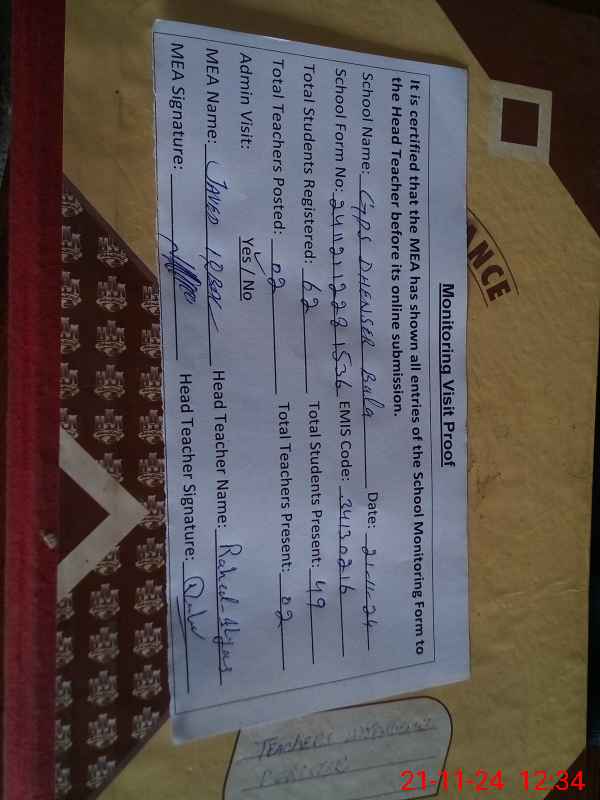 Monitoring Visit Proof
It is certified that the MEA has shown all entries of the School Monitoring Form to
the Head Teacher before its online submission.
School Name: GPS DHENSER Bala Date: 21-11-24
School Form No: 24112112281536 EMIS Code: 34130216
Total Students Registered: 62 Total Students Present: 49
Total Teachers Posted: 02 Total Teachers Present: 02
Admin Visit: Yes / No
MEA Name: JAVED IQBAL Head Teacher Name: Raheel Ilyas
MEA Signature: Head Teacher Signature:
ANCE
TEACHERS ATTENDANCE
REGISTER
21-11-24 12:34